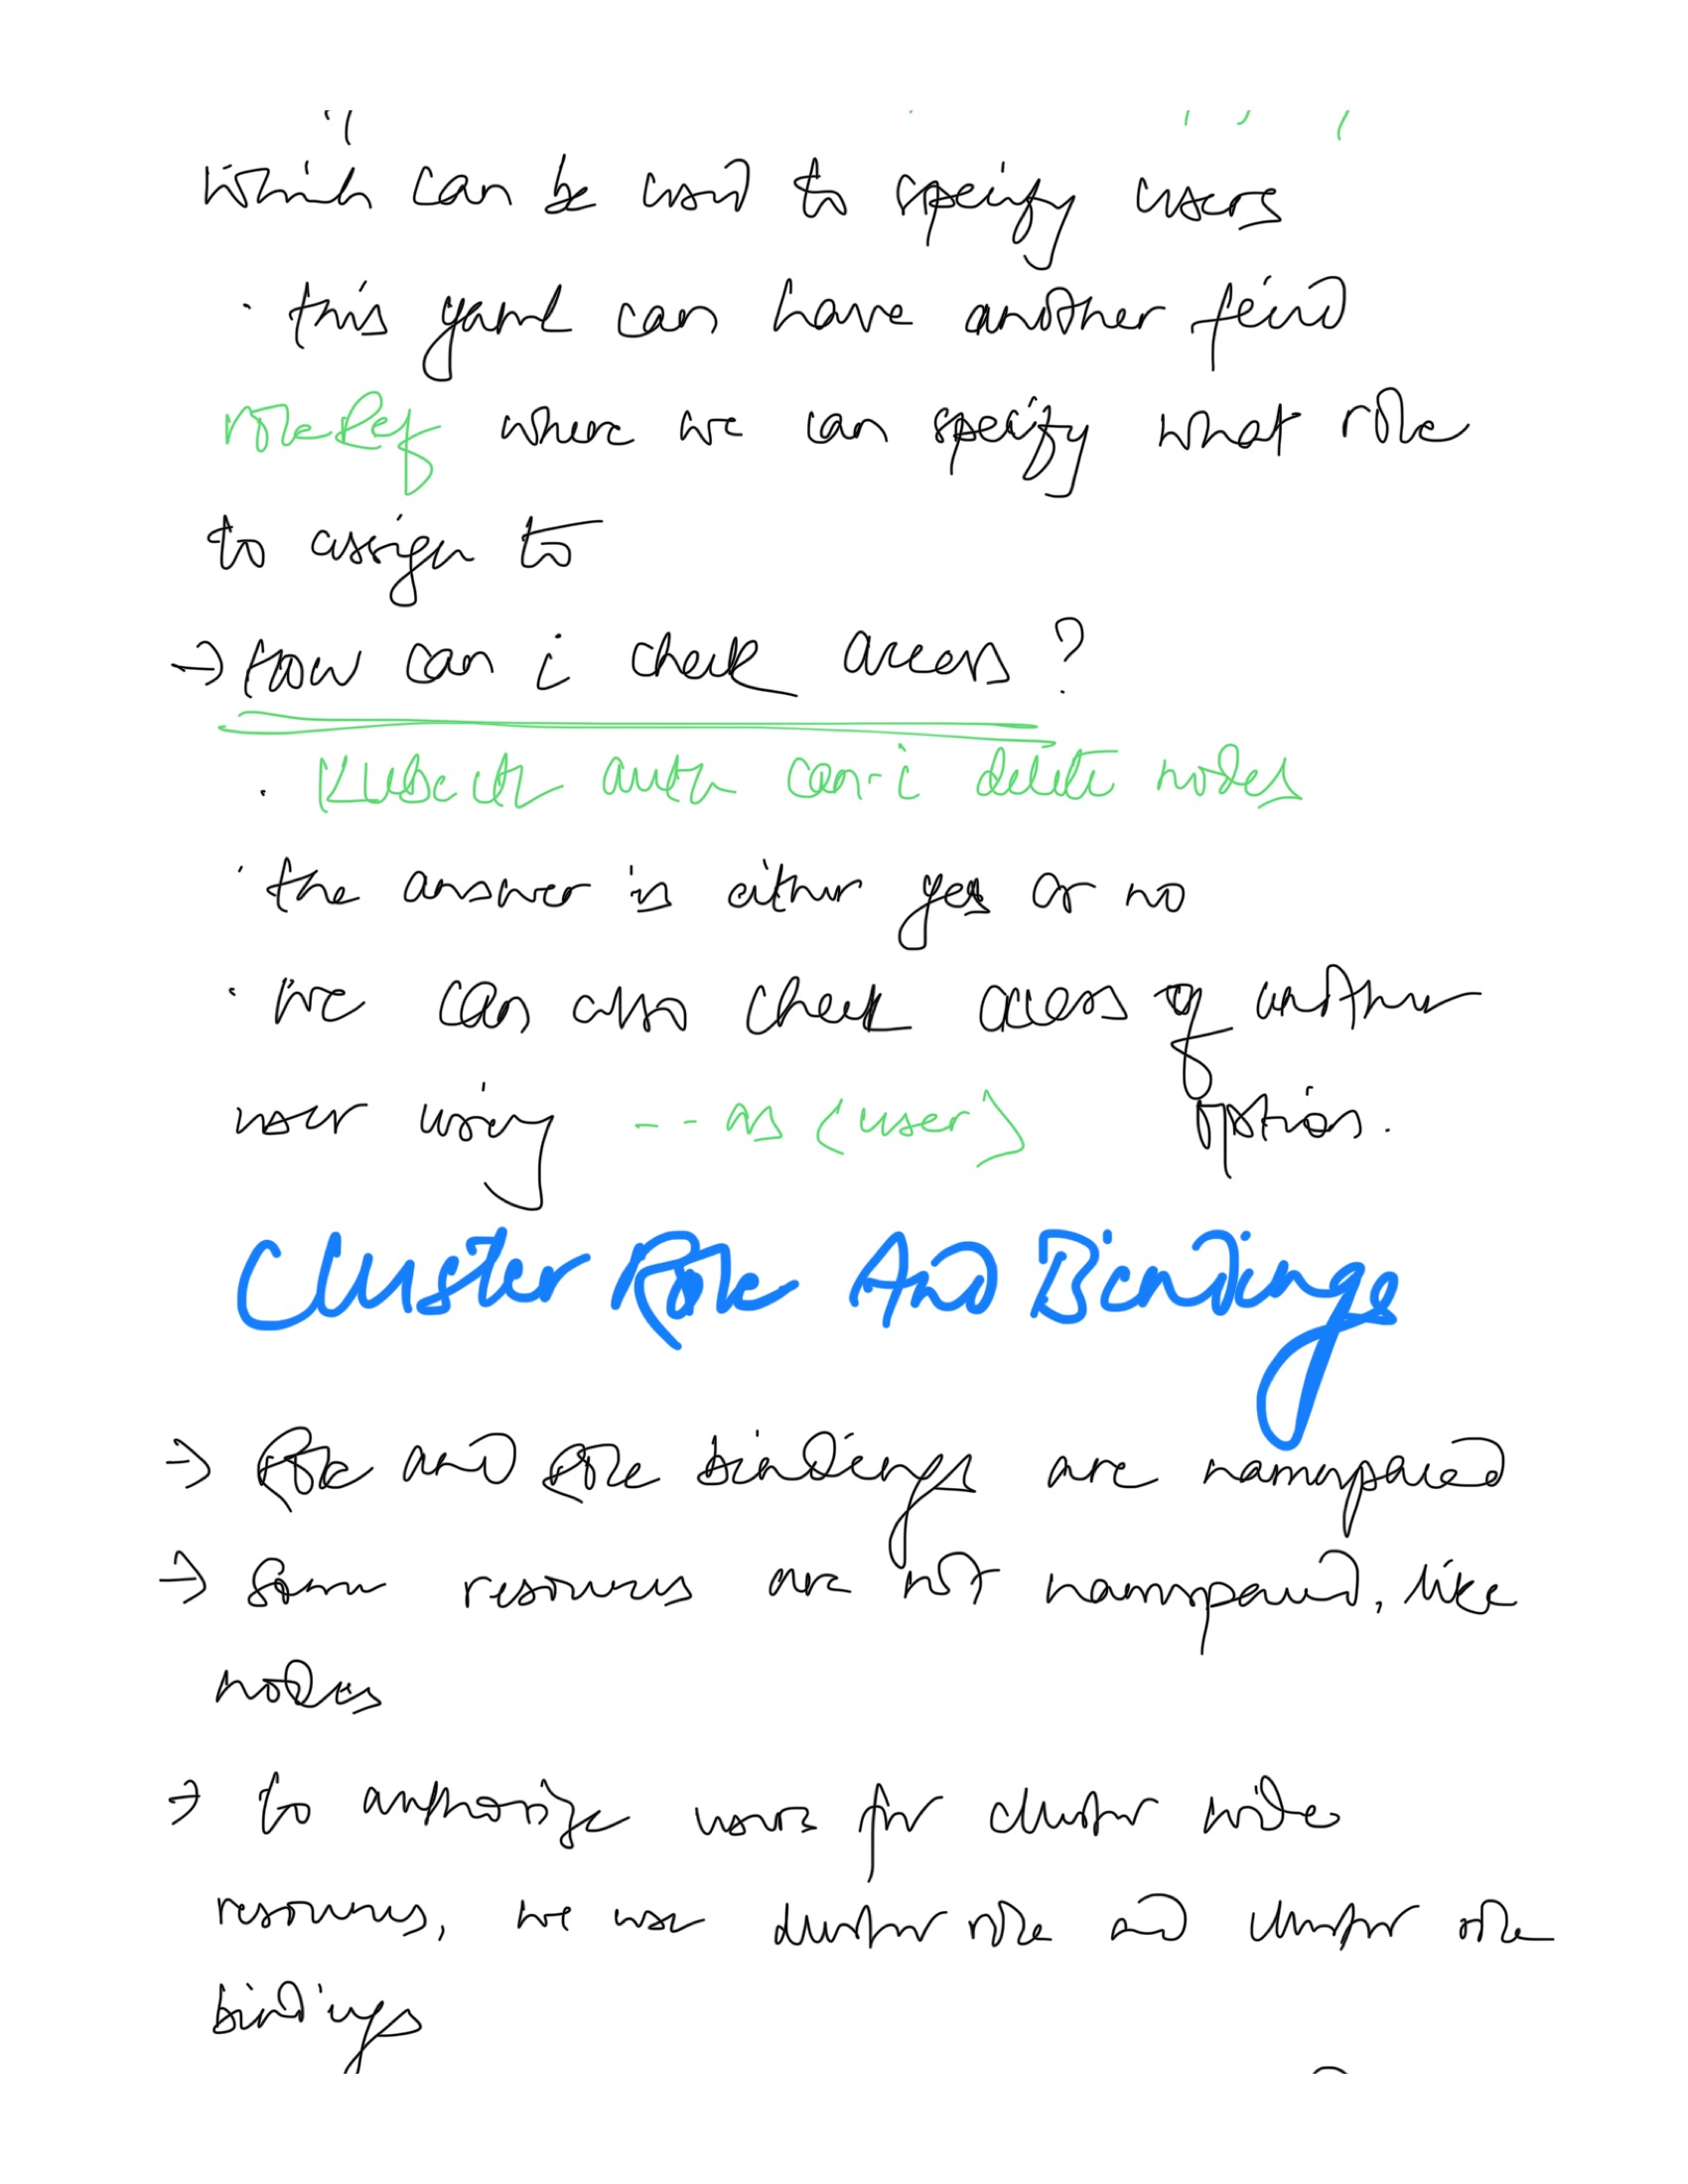 which can be used to specify users
· this yaml can have another field
roleRef where we can specify what role
to assign to
→ How can i check access?
· Kubectl auth can-i delete nodes
· the answer is either yes or no
· we can also check access of another
user using -- as {user} option.
Cluster Role And Bindings
→ Role and Role bindings are namespaced
→ Some resources are not namespaced, like
nodes
→ to authorize users for cluster wide
resources, we use cluster role and cluster role
bindings